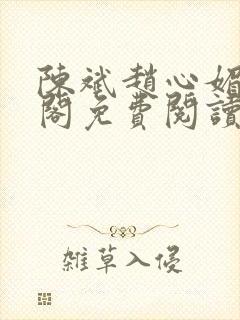 陳斌趙心媚
閣免費閱讀
雜草入侵